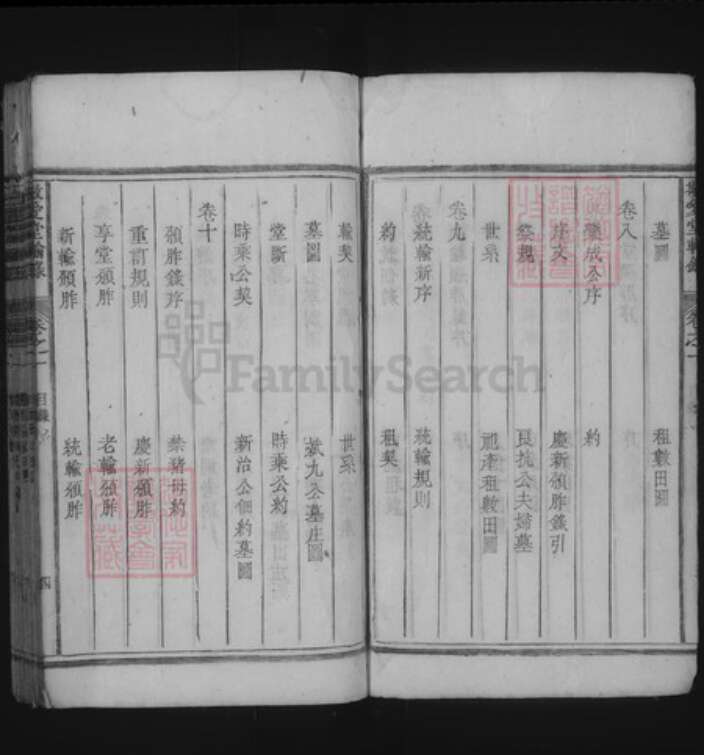 墓圖　租數田圖
卷八
樂成公序　約
序文　慶新頒胙錢引
祭規　良抗公夫婦墓
世系　祀產租數田圖
卷九
統輪新序　統輪規則
約　租契
輪契　世系
墓圖　武九公墓庄圖
堂斷　時乘公約
時乘公契　新治公佃約墓圖
卷十
頒胙錢序　禁豬母約
重訂規則　慶新頒胙
享堂頒胙　老輪頒胙
新輪頒胙　統輪頒胙
卷之一
目錄
四
FamilySearch